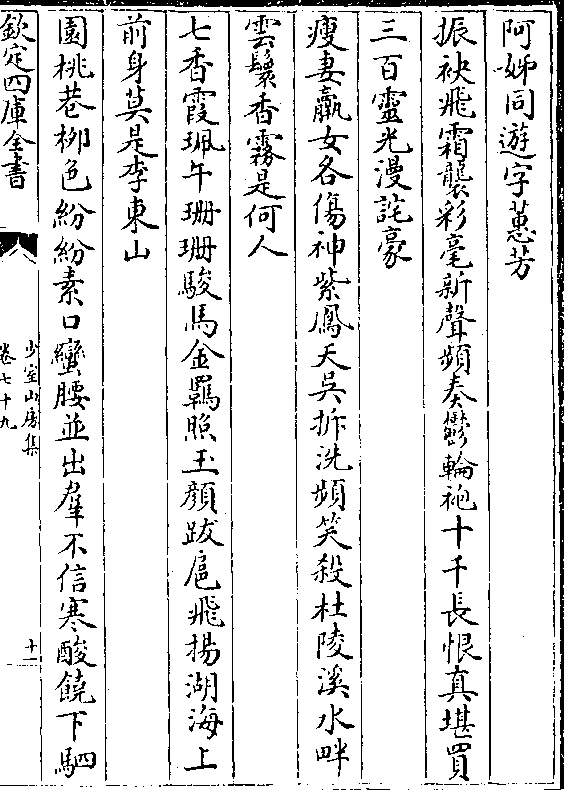 阿姊同遊字蕙芳
振袂飛霜襲彩毫新聲頻奏鬱輪袍十千長恨真堪買
三百靈光漫詫豪
瘦妻羸女各傷神紫鳳天吳拆洗頻笑殺杜陵溪水畔
雲鬟香霧是何人
七香霞珮午珊珊駿馬金羈照玉顔跋扈飛揚湖海上
前身莫是李東山
園桃巷柳色紛紛素口蠻腰並出羣不信寒酸饒下駟
欽定四庫全書
少室山房集
卷七十九
十一